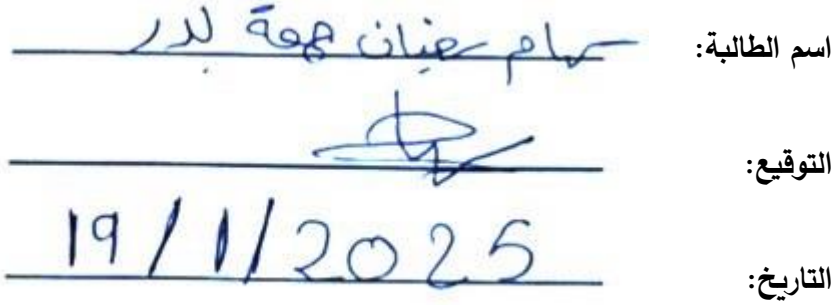 اسم الطالبة: سهام سفيان جمعة بدر
التوقيع:
التاريخ: 19/1/2025